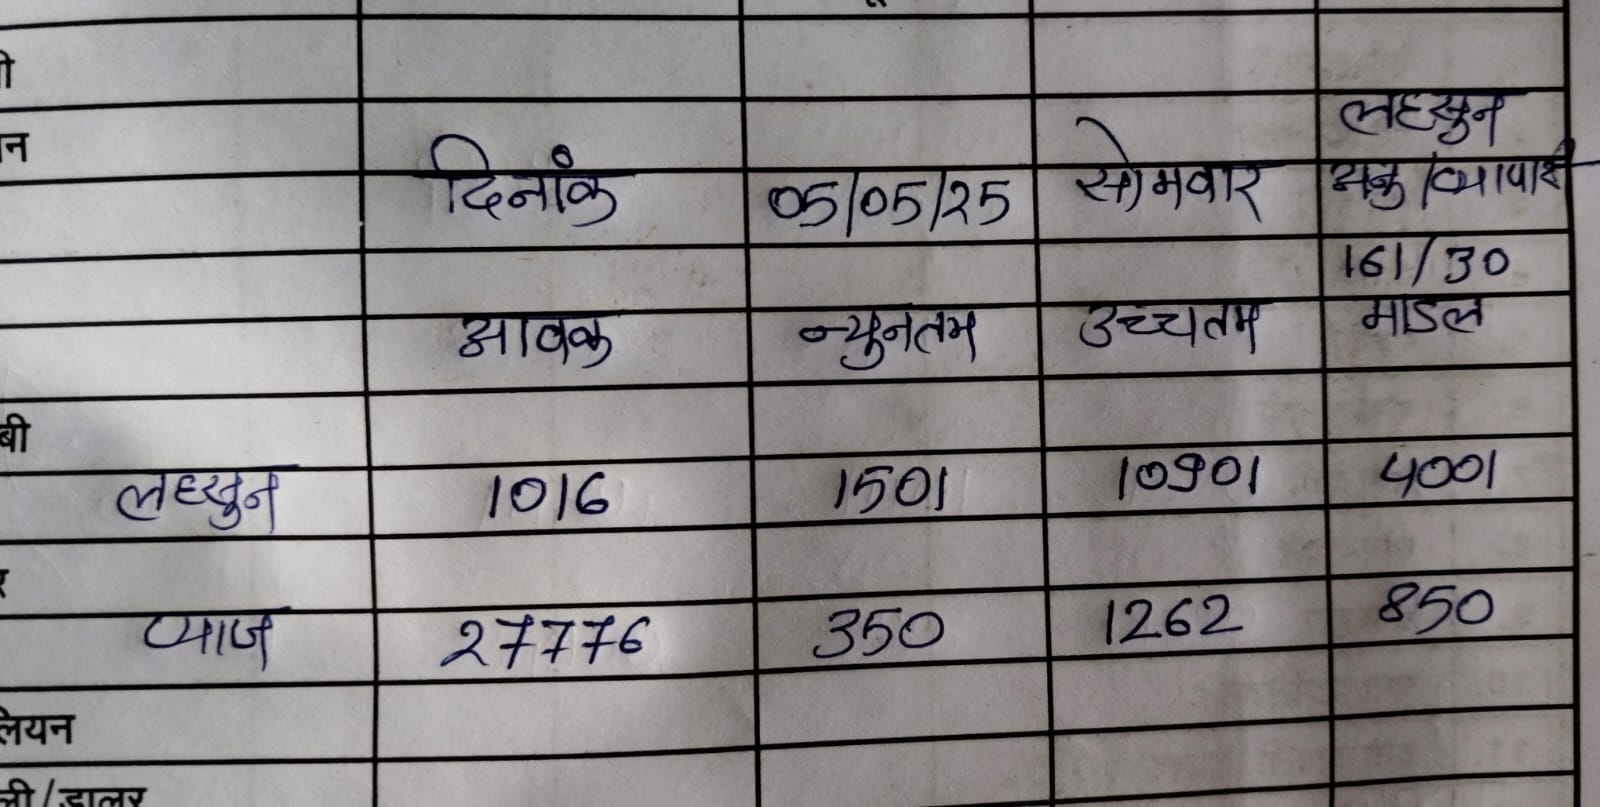 लहसुन
दिनांक 05/05/25 सोमवार अनु/व्यापारी
161/30
आवक न्युनतम उच्चतम माडल
बी
लहसुन 1016 1501 10901 4001
प्याज 27776 350 1262 850
लियन
ली/डालर